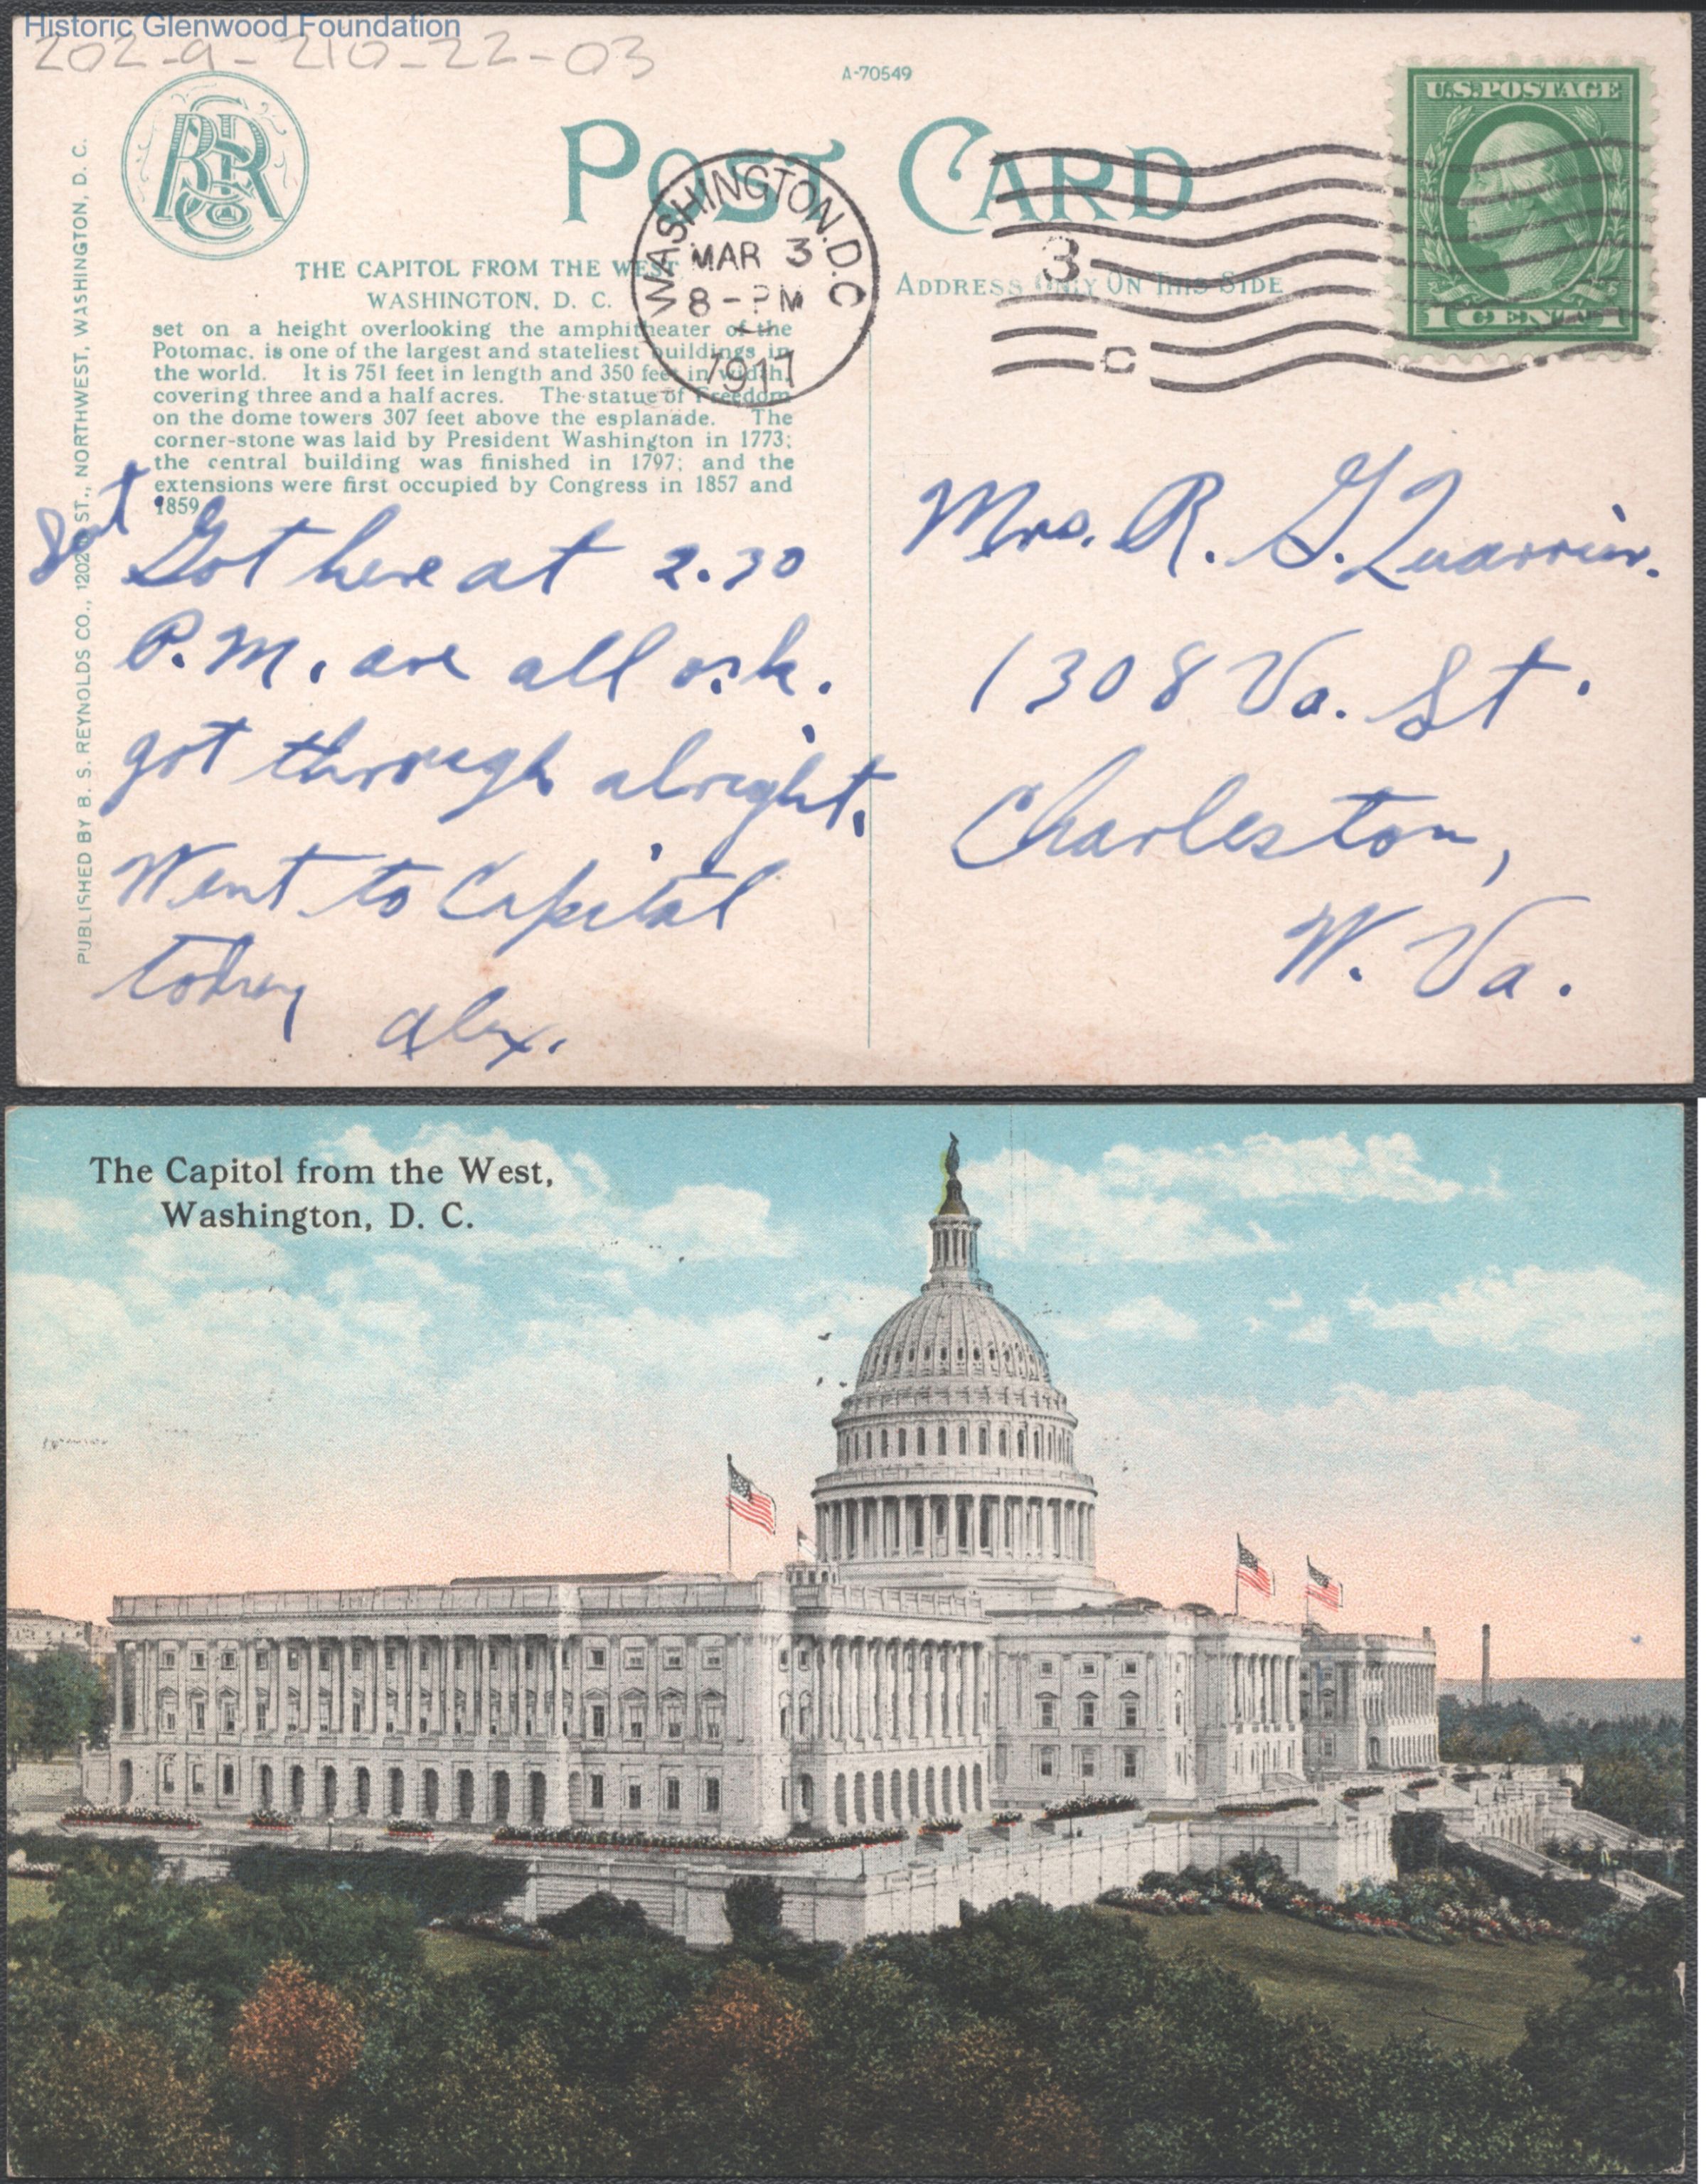 Historic Glenwood Foundation
202-9-210-22-03
A-70549
BSR Co
POST CARD
THE CAPITOL FROM THE WEST
WASHINGTON, D. C.
set on a height overlooking the amphitheater of the
Potomac, is one of the largest and stateliest buildings in
the world. It is 751 feet in length and 350 feet in width,
covering three and a half acres. The statue of Freedom
on the dome towers 307 feet above the esplanade. The
corner-stone was laid by President Washington in 1773;
the central building was finished in 1797; and the
extensions were first occupied by Congress in 1857 and
1859.
PUBLISHED BY B. S. REYNOLDS CO., 1202 ST., NORTHWEST, WASHINGTON, D. C.
WASHINGTON, D.C.
MAR 3
8-PM
1917
3
C
ADDRESS ONLY ON THIS SIDE
U.S. POSTAGE
1 CENT 1
Sat
Got here at 2.30
P.M. are all o.k.
got through alright.
Went to Capital
today
Alex.
Mrs. R. G. Quarrier.
1308 Va. St.
Charleston,
W. Va.
The Capitol from the West,
Washington, D. C.